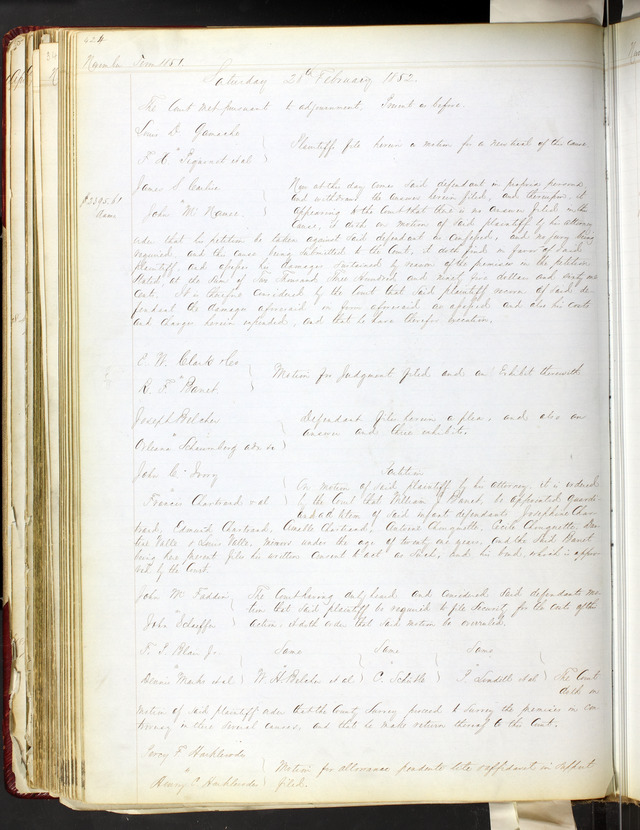 424
November Term 1851
Saturday 28th February 1852.
The Court met pursuant to adjournment. Present as before.
Louis D. Gamache
vs
F. H. Piguenet et al
Plaintiffs file herein a motion for a new trial of this cause
James S.
"
John M. Nanse.
$2395.61
Now at this day comes said defendant in proper person
and withdraws the answer herein filed, and thereupon it
appearing to the Court that there is no answer filed in the
Cause, it doth on motion of said plaintiff by his attorney
order that his petition be taken against said defendant as confessed, and no jury being
required, and the cause being submitted to the Court, it doth find in favor of said
plaintiff and assess his damages sustained by reason of the premises in the petition
stated, at the sum of Two Thousand Three Hundred and ninety five dollars and sixty one
cents. It is therefore considered by the Court that said plaintiff recover of said de-
fendant the damages aforesaid in form aforesaid so assessed and also his costs
and charges herein expended, and that he have therefor execution.
E. W. Clark & Co
"
R. F. Barret
Motion for Judgment filed and an Exhibit therewith
Joseph Belcher
"
Orleana Schaumburg adx &c
Defendant files herein a plea, and also an
answer and three exhibits.
John C. Ivory
"
Francis Chartrand et al
Partition
On motion of said plaintiff by his attorney it is ordered
by the Court that William J. Barret, be appointed guard-
ian ad litem of said infant defendants Josephine Char-
trand, Edward Chartrand, Amelle Chartrand, Antoine Chouquette, Cecile Chouquette,
Valle & Louis Valle, minors under the age of twenty one years, and the said Barret
being here present files his written consent to act as such, and his bond, which is appro-
ved by the Court.
John McFaddin
"
John Scheffer
The Court having duly heard and considered said defendants mo-
tion that said plaintiff be required to file Security for the costs of the
action, doth order that said motion be overruled.
F. P. Blair Jr.
"
Dennis Marks et al
Same
"
W. H. Belcher et al
Same
"
C. Schüttle
Same
"
P. Lindell et al
The Court
doth on
motion of said plaintiff order that the County Surveyor proceed to Survey the premises in con-
troversy in these several causes, and that he make return thereof to this Court.
Percy F. Harkleroads
"
Henry C. Harkleroads
Motion for allowance pendente lite & affidavit in support
filed.